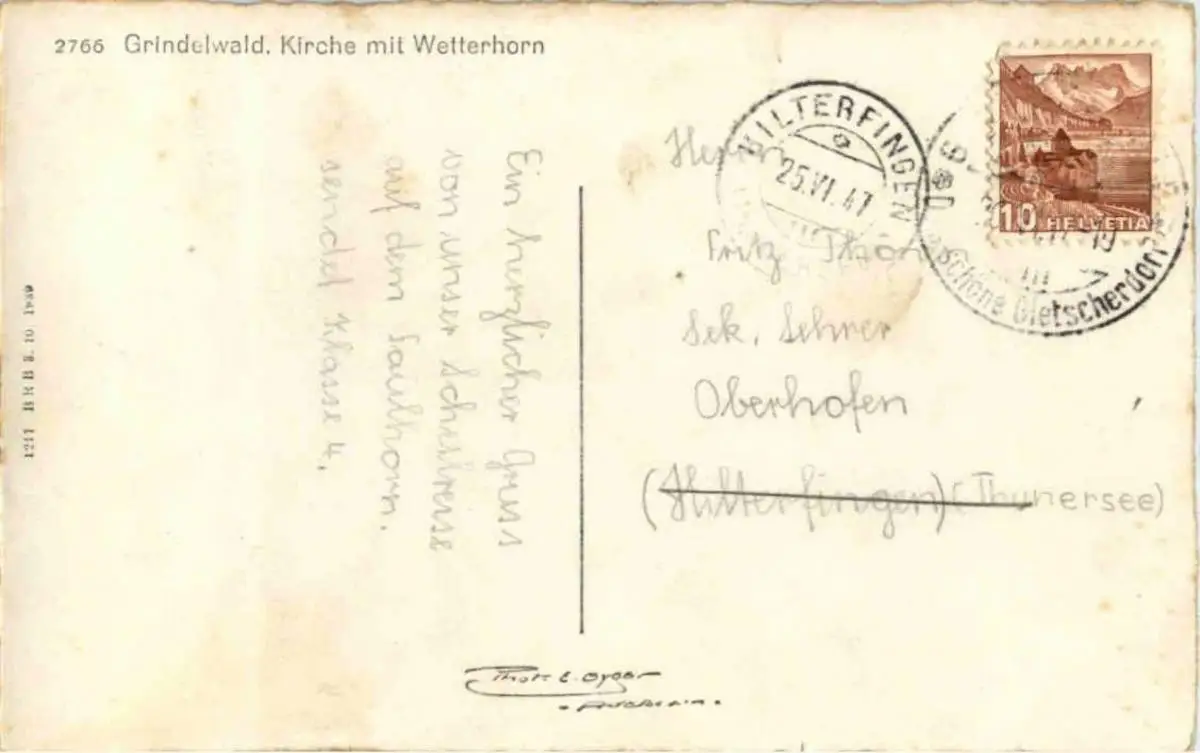 2766 Grindelwald. Kirche mit Wetterhorn
Ein herzlicher Gruss
von unser Schehreise
auf dem Faulhorn.
sendet Klasse 4.
HILTERFINGEN
25.VI.47
schöne Gletscherdorf
10 HELVETIA
Herrn
Fritz
Sek. Lehrer
Oberhofen
(Hilterfingen) (Thunersee)
1241 BRB 3.10 1939
Phot. E. Gyger